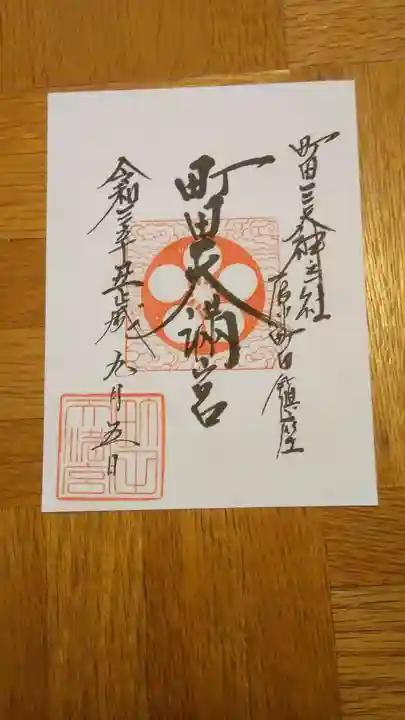 町田三天神之社
原町田鎮座
町田天満宮
令和三年丑歳九月五日